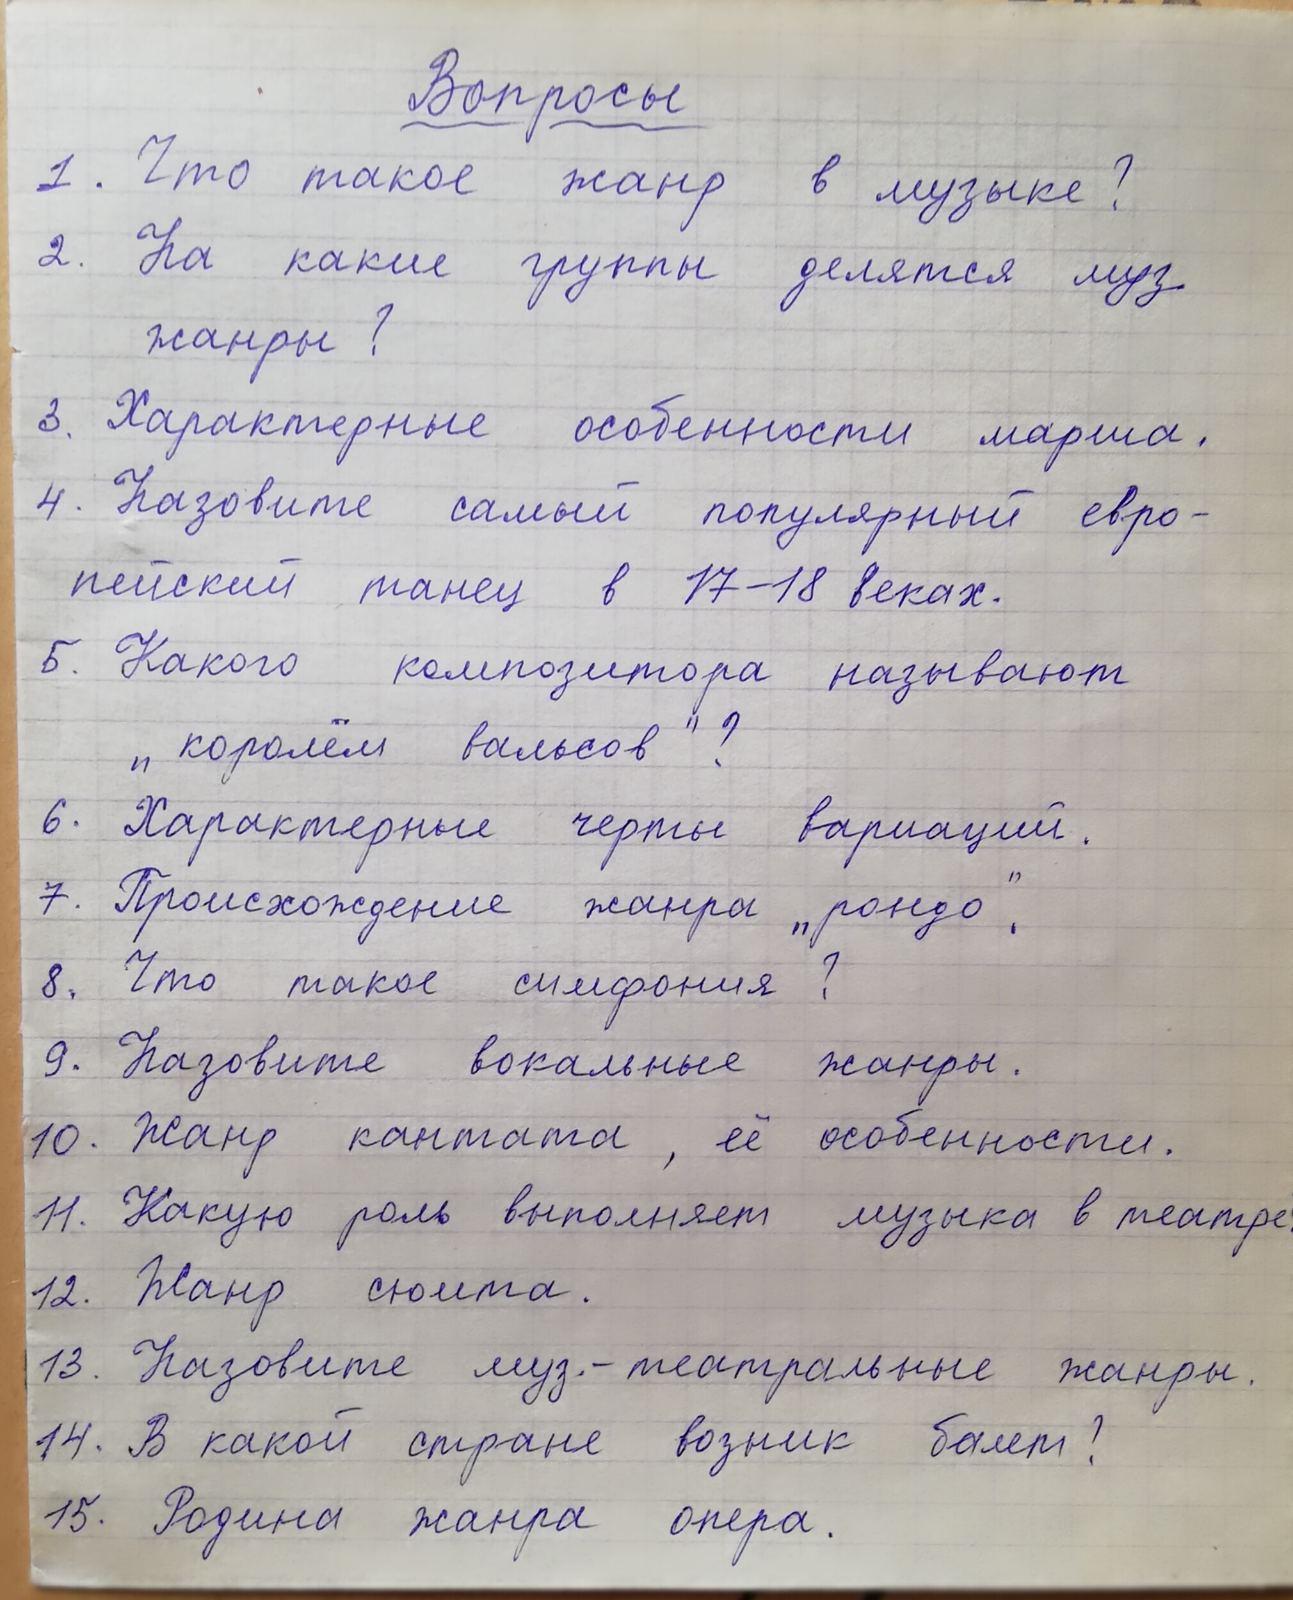 Вопросы
1. Что такое жанр в музыке?
2. На какие группы делятся муз.
жанры?
3. Характерные особенности марша.
4. Назовите самый популярный евро-
пейский танец в 17-18 веках.
5. Какого композитора называют
„королём вальсов"?
6. Характерные черты вариаций.
7. Происхождение жанра „рондо".
8. Что такое симфония?
9. Назовите вокальные жанры.
10. Жанр кантата, её особенности.
11. Какую роль выполняет музыка в театре?
12. Жанр сюита.
13. Назовите муз.-театральные жанры.
14. В какой стране возник балет?
15. Родина жанра опера.